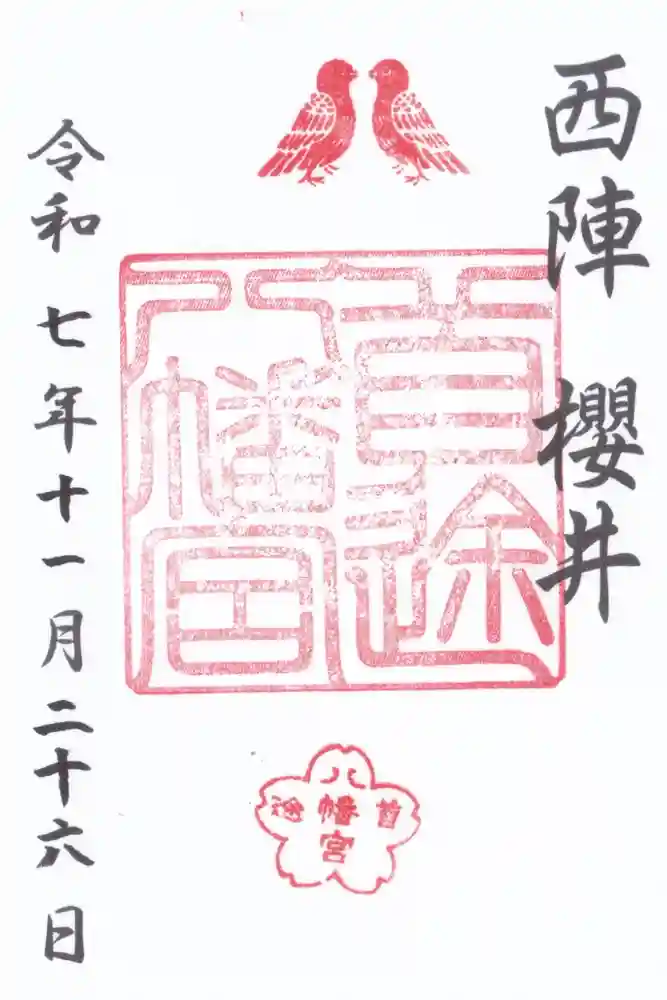 西陣 櫻井
首途
八幡宮
首途
八幡宮
令和 七年十一月二十六日